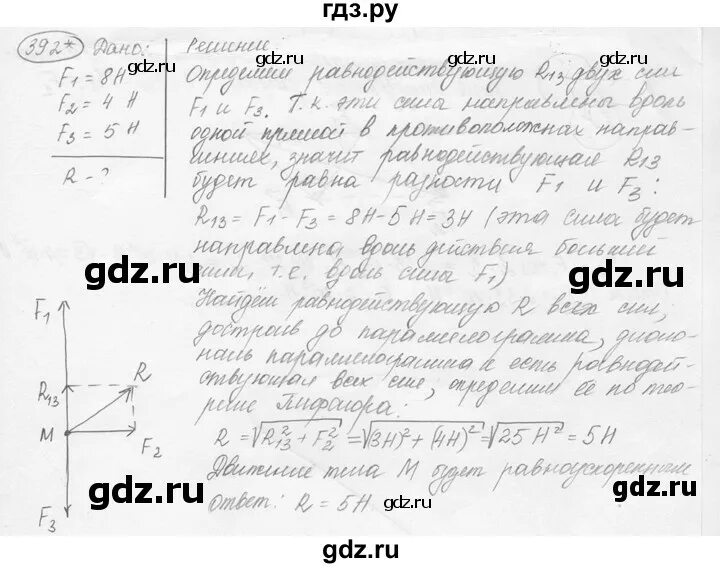 гдз.ру
392* Дано:
F1 = 8Н
F2 = 4 Н
F3 = 5 Н
R - ?
Решение
gdz.ru
gdz.ru
Определим равнодействующую R13 двух сил
F1 и F3. Т.к. эти сила направлены вдоль
одной прямой в противоположных направ-
лениях, значит равнодействующая R13
будет равна разности F1 и F3:
R13 = F1 - F3 = 8Н - 5Н = 3Н (эта сила будет
направлена вдоль действия большей
силы, т.е. вдоль силы F1)
gdz.ru
gdz.ru
Найдём равнодействующую R всех сил,
достроив до параллелограмма, диаго-
наль параллелограмма и есть равнодей-
ствующая всех сил, определим её по тео-
реме Пифагора:
R = √R13² + F2² = √(3Н)² + (4Н)² = √25 Н² = 5Н
Движение тела М будет равноускоренным
ответ: R = 5Н
F1
R13
R
M
F2
F3
gdz.ru
gdz.ru
gdz.ru